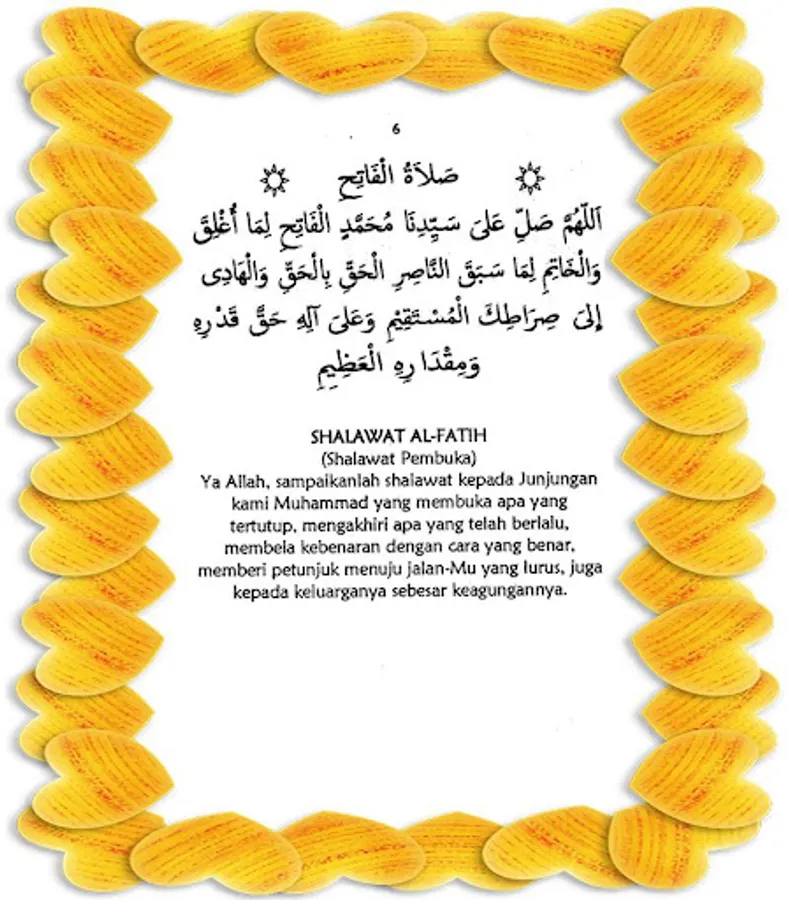 6
صَلاَةُ الْفَاتِحِ
اَللّٰهُمَّ صَلِّ عَلىَ سَيِّدِنَا مُحَمَّدٍ الْفَاتِحِ لِمَا أُغْلِقَ
وَالْخَاتِمِ لِمَا سَبَقَ النَّاصِرِ الْحَقِّ بِالْحَقِّ وَالْهَادِى
إِلىَ صِرَاطِكَ الْمُسْتَقِيْمِ وَعَلىَ آلِهِ حَقَّ قَدْرِهِ
وَمِقْدَارِهِ الْعَظِيْمِ
SHALAWAT AL-FATIH
(Shalawat Pembuka)
Ya Allah, sampaikanlah shalawat kepada Junjungan
kami Muhammad yang membuka apa yang
tertutup, mengakhiri apa yang telah berlalu,
membela kebenaran dengan cara yang benar,
memberi petunjuk menuju jalan-Mu yang lurus, juga
kepada keluarganya sebesar keagungannya.